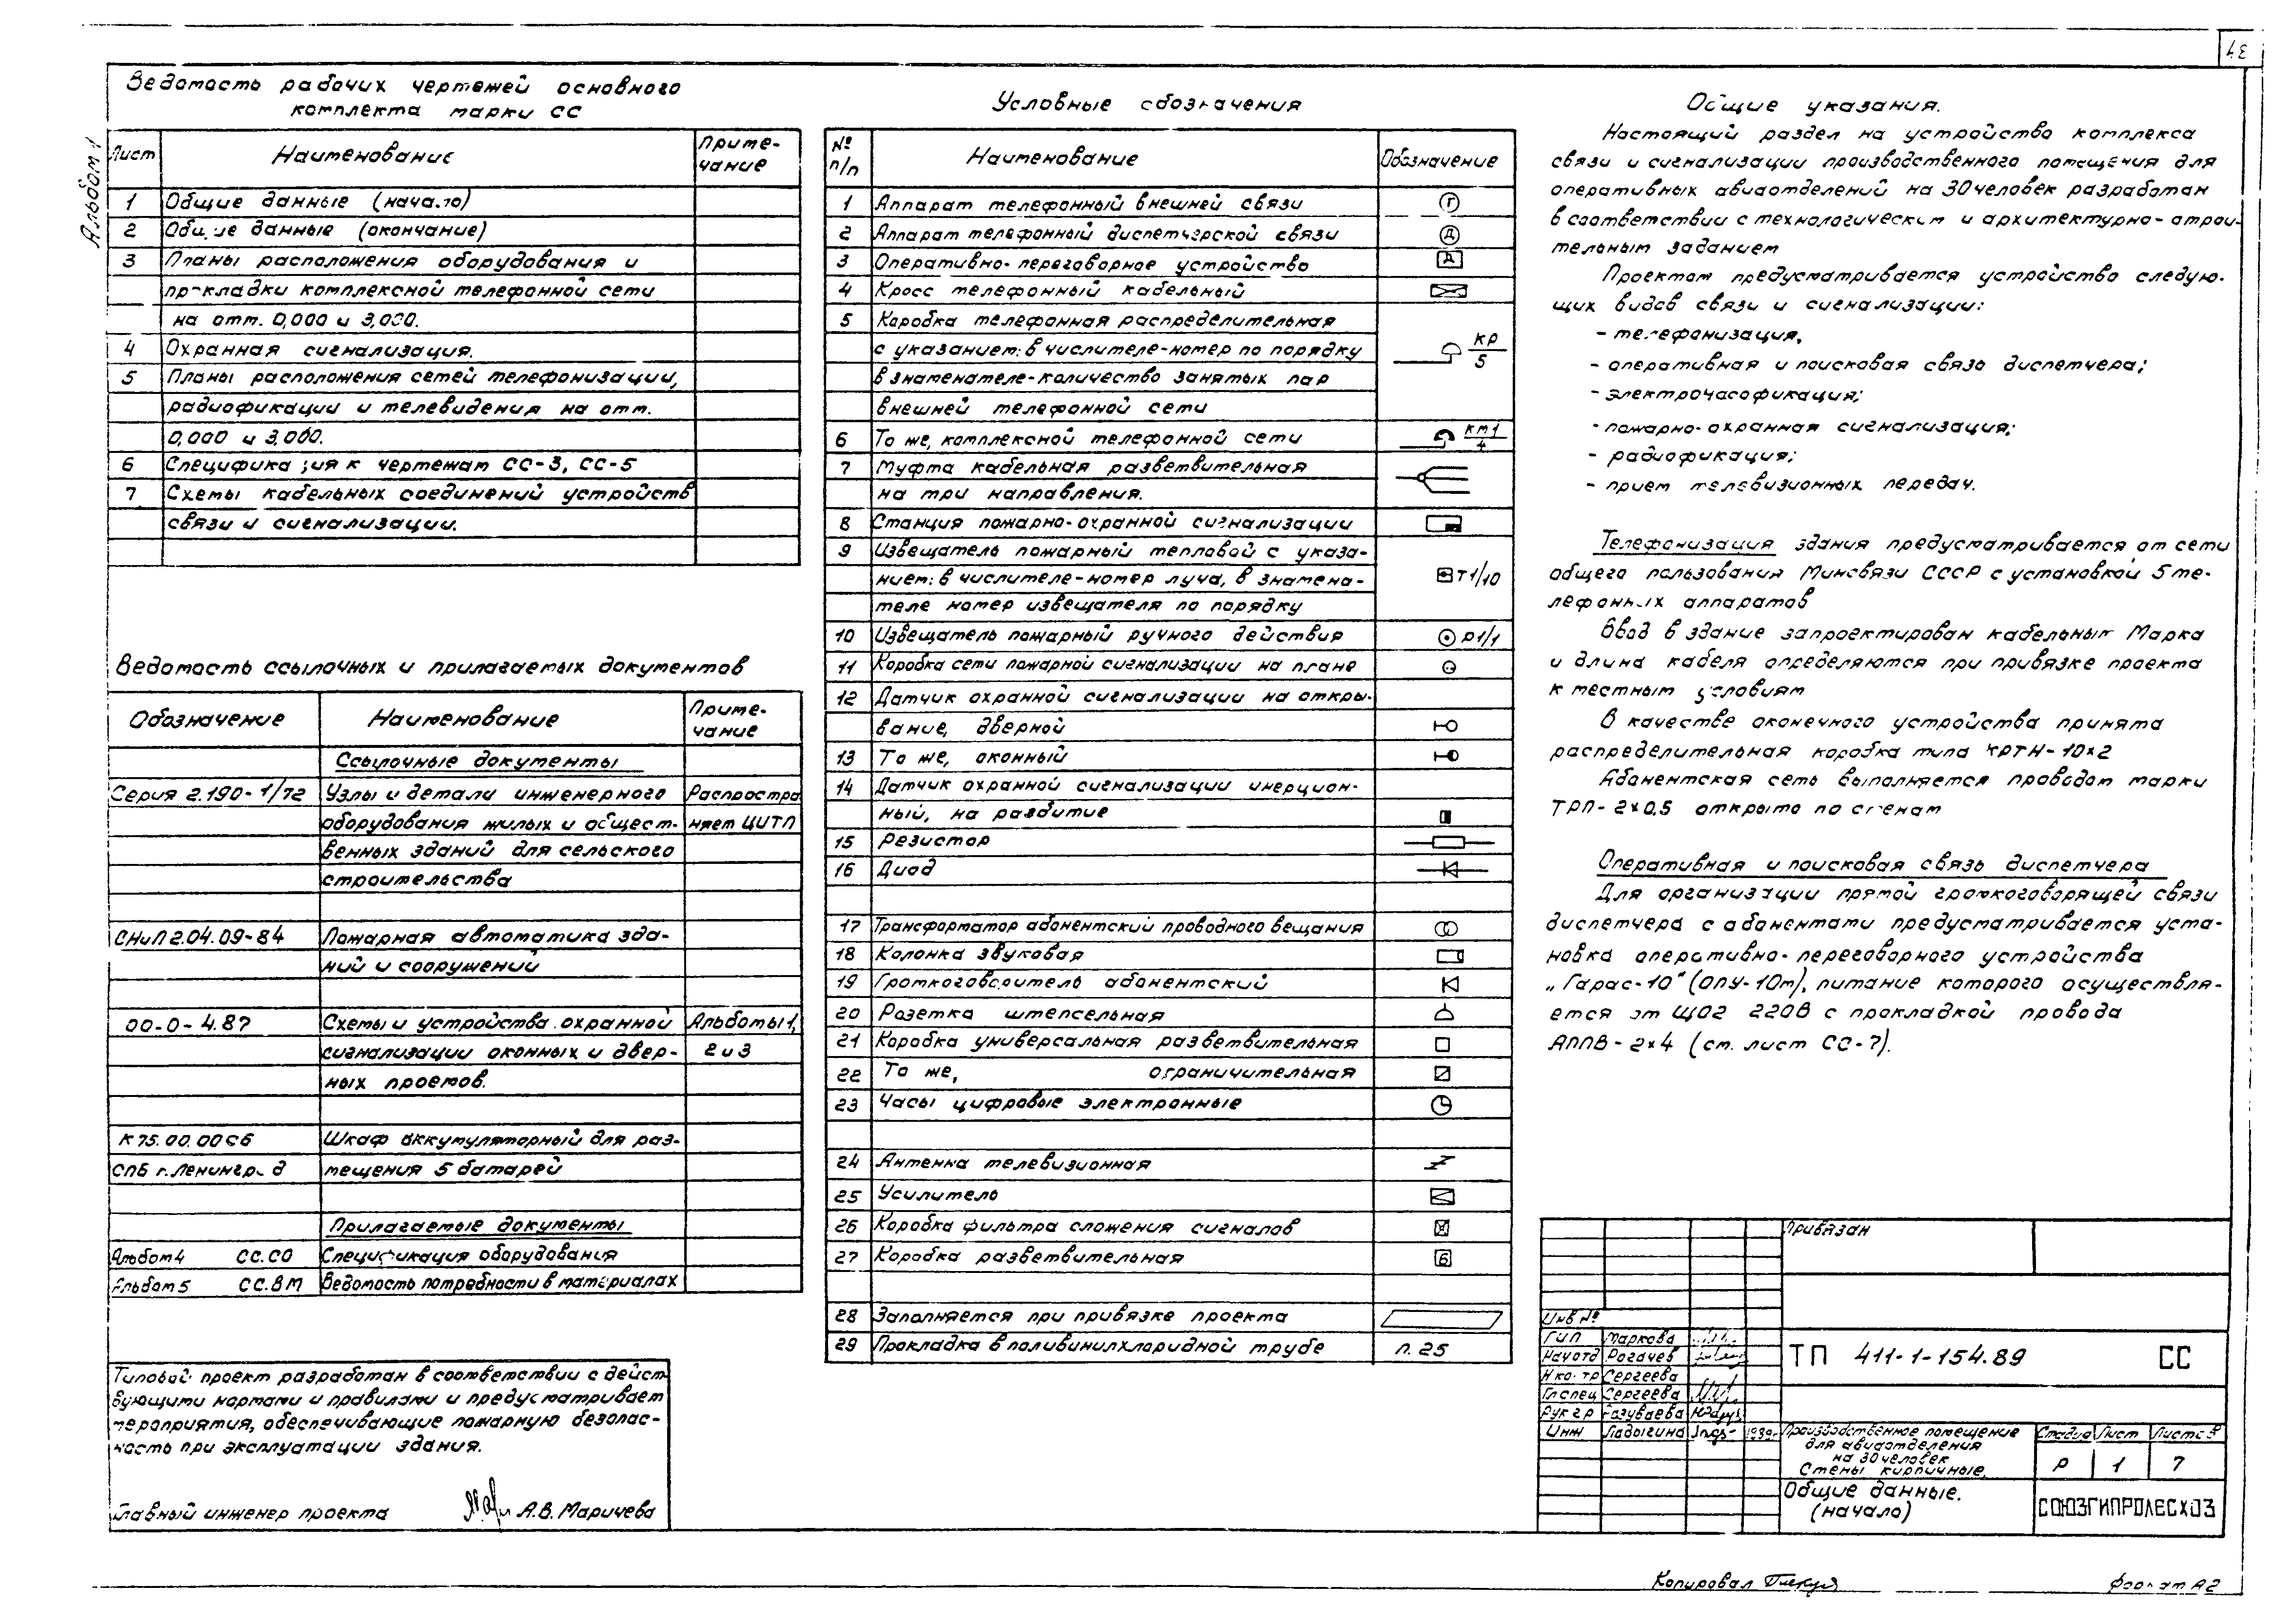 Альбом 1
Ведомость рабочих чертежей основного
комплекта марки СС
Лист Наименование Приме-
чание
1 Общие данные (начало)
2 Общие данные (окончание)
3 Планы расположения оборудования и
прокладки комплексной телефонной сети
на отм. 0,000 и 3,000.
4 Охранная сигнализация.
5 Планы расположения сетей телефонизации,
радиофикации и телевидения на отм.
0,000 и 3,000.
6 Спецификация к чертежам СС-3, СС-5
7 Схемы кабельных соединений устройств
связи и сигнализации.
Ведомость ссылочных и прилагаемых документов
Обозначение Наименование Приме-
чание
Ссылочные документы
Серия 2.190-1/72 Узлы и детали инженерного Распростра
оборудования жилых и общест- няет ЦИТП
венных зданий для сельского
строительства
СНиП 2.04.09-84 Пожарная автоматика зда-
ний и сооружений
00-0-4.87 Схемы и устройства охранной Альбомы 1,
сигнализации оконных и двер- 2 и 3
ных проемов.
К 75.00.00 Сб Шкаф аккумуляторный для раз-
СПБ г. Ленинград мещения 5 батарей
Прилагаемые документы
Альбом 4 СС.СО Спецификация оборудования
Альбом 5 СС.ВМ Ведомость потребности в материалах
Типовой проект разработан в соответствии с дейст
вующими нормами и правилами и предусматривает
мероприятия, обеспечивающие пожарную безопас-
ность при эксплуатации здания.
Главный инженер проекта А.В. Маричева
Условные обозначения
№
п/п Наименование Обозначение
1 Аппарат телефонный внешней связи Г
2 Аппарат телефонный диспетчерской связи Д
3 Оперативно-переговорное устройство Д
4 Кросс телефонный кабельный
5 Коробка телефонная распределительная
с указанием: в числителе-номер по порядку КР
5
в знаменателе-количество занятых пар
внешней телефонной сети
6 То же, комплексной телефонной сети КМ1
4
7 Муфта кабельная разветвительная
на три направления.
8 Станция пожарно-охранной сигнализации
9 Извещатель пожарный тепловой с указа-
нием: в числителе-номер луча, в знамена- Т1/10
теле номер извещателя по порядку
10 Извещатель пожарный ручного действия Р1/1
11 Коробка сети пожарной сигнализации на плане
12 Датчик охранной сигнализации на откры-
вание, дверной
13 То же, оконный
14 Датчик охранной сигнализации инерцион-
ный, на разбитие
15 Резистор
16 Диод
17 Трансформатор абонентский проводного вещания
18 Колонка звуковая
19 Громкоговоритель абонентский
20 Розетка штепсельная
21 Коробка универсальная разветвительная
22 То же, ограничительная
23 Часы цифровые электронные
24 Антенна телевизионная
25 Усилитель
26 Коробка фильтра сложения сигналов
27 Коробка разветвительная Б
28 Заполняется при привязке проекта
29 Прокладка в поливинилхлоридной трубе п. 25
Общие указания.
Настоящий раздел на устройство комплекса
связи и сигнализации производственного помещения для
оперативных авиаотделений на 30 человек разработан
в соответствии с технологическим и архитектурно-строи-
тельным заданием
Проектом предусматривается устройство следую-
щих видов связи и сигнализации:
- телефонизация,
- оперативная и поисковая связь диспетчера;
- электрочасофикация;
- пожарно-охранная сигнализация;
- радиофикация;
- прием телевизионных передач.
Телефонизация здания предусматривается от сети
общего пользования Минсвязи СССР с установкой 5 те-
лефонных аппаратов
Ввод в здание запроектирован кабельным Марка
и длина кабеля определяются при привязке проекта
к местным условиям
В качестве оконечного устройства принята
распределительная коробка типа КРТН-10×2
Абонентская сеть выполняется проводом марки
ТРП-2×0,5 открыто по стенам
Оперативная и поисковая связь диспетчера
Для организации прямой громкоговорящей связи
диспетчера с абонентами предусматривается уста-
новка оперативно-переговорного устройства
„Гарас-10" (ОПУ-10м), питание которого осуществля-
ется от ЩО2 220В с прокладкой провода
АППВ-2×4 (см. лист СС-7).
Привязан
Инв №
ГИП Маркова
Нач отд Рогачев
Н.контр Сергеева
Гл спец Сергеева
Рук гр Разуваева
Инж Ладыгина 1989г
ТП 411-1-154.89 СС
Производственное помещение
для авиаотделения
на 30 человек
Стены кирпичные.
Стадия Лист Листов
Р 1 7
Общие данные.
(начало)
СОЮЗГИПРОЛЕСХОЗ
Копировал
Формат А2